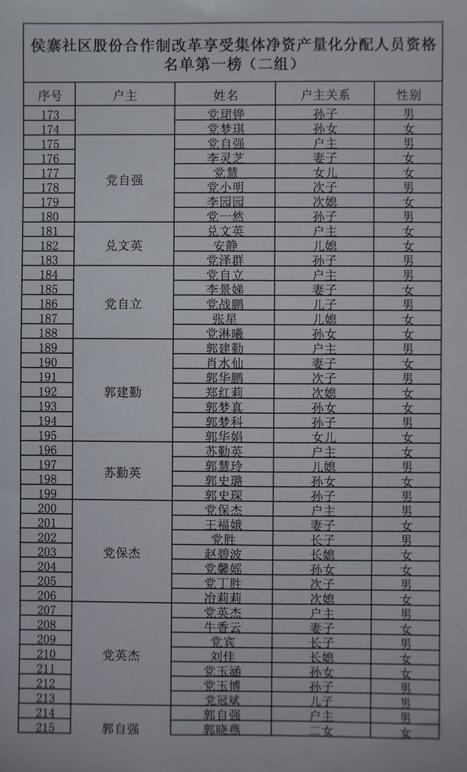 侯寨社区股份合作制改革享受集体净资产量化分配人员资格
名单第一榜（二组）
序号 户主 姓名 户主关系 性别
173 党珺铧 孙子 男
174 党梦琪 孙女 女
175 党自强 户主 男
176 李灵芝 妻子 女
177 党慧 女儿 女
178 党自强 党小明 次子 男
179 李园园 次媳 女
180 党一然 孙子 男
181 兑文英 户主 女
182 兑文英 安静 儿媳 女
183 党泽群 孙子 男
184 党自立 户主 男
185 李景娣 妻子 女
186 党自立 党战鹏 儿子 男
187 张星 儿媳 女
188 党淋曦 孙女 女
189 郭建勤 户主 男
190 肖水仙 妻子 女
191 郭华鹏 次子 男
192 郭建勤 郑红莉 次媳 女
193 郭梦真 孙女 女
194 郭梦科 孙子 男
195 郭华娟 女儿 女
196 苏勤英 户主 女
197 郭慧玲 儿媳 男
198 苏勤英 郭史璐 孙女 女
199 郭史琛 孙子 男
200 党保杰 户主 男
201 王福娥 妻子 女
202 党胜 长子 男
203 党保杰 赵碧波 长媳 女
204 党馨嫣 孙女 女
205 党丁胜 次子 男
206 冶莉莉 次媳 女
207 党英杰 户主 男
208 牛香云 妻子 女
209 党宾 长子 男
210 党英杰 刘佳 长媳 女
211 党玉涵 孙女 女
212 党玉博 孙子 男
213 党冠斌 儿子 男
214 郭自强 户主 男
215 郭自强 郭晓燕 二女 女